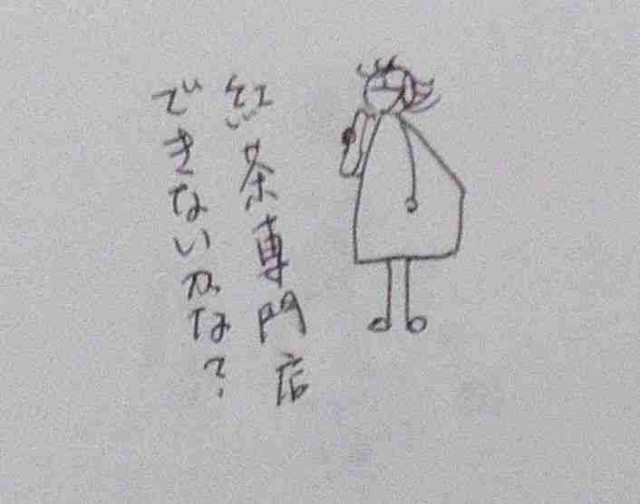 紅茶専門店
できないかな?